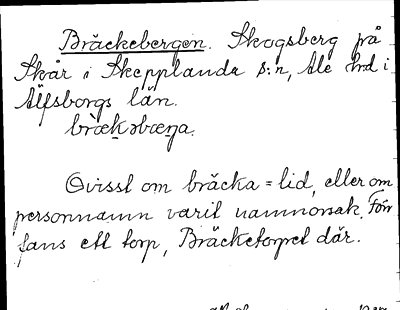 Bräckebergen. Skogsberg på
Skår i Skepplanda s:n, Ale hrd i
Älfsborgs län.
bræ̀kəbærɳa.
Ovisst om bräcka = lid, eller om
personnamn varit namnorsak. Förr
fans ett torp, Bräcketorpet där.